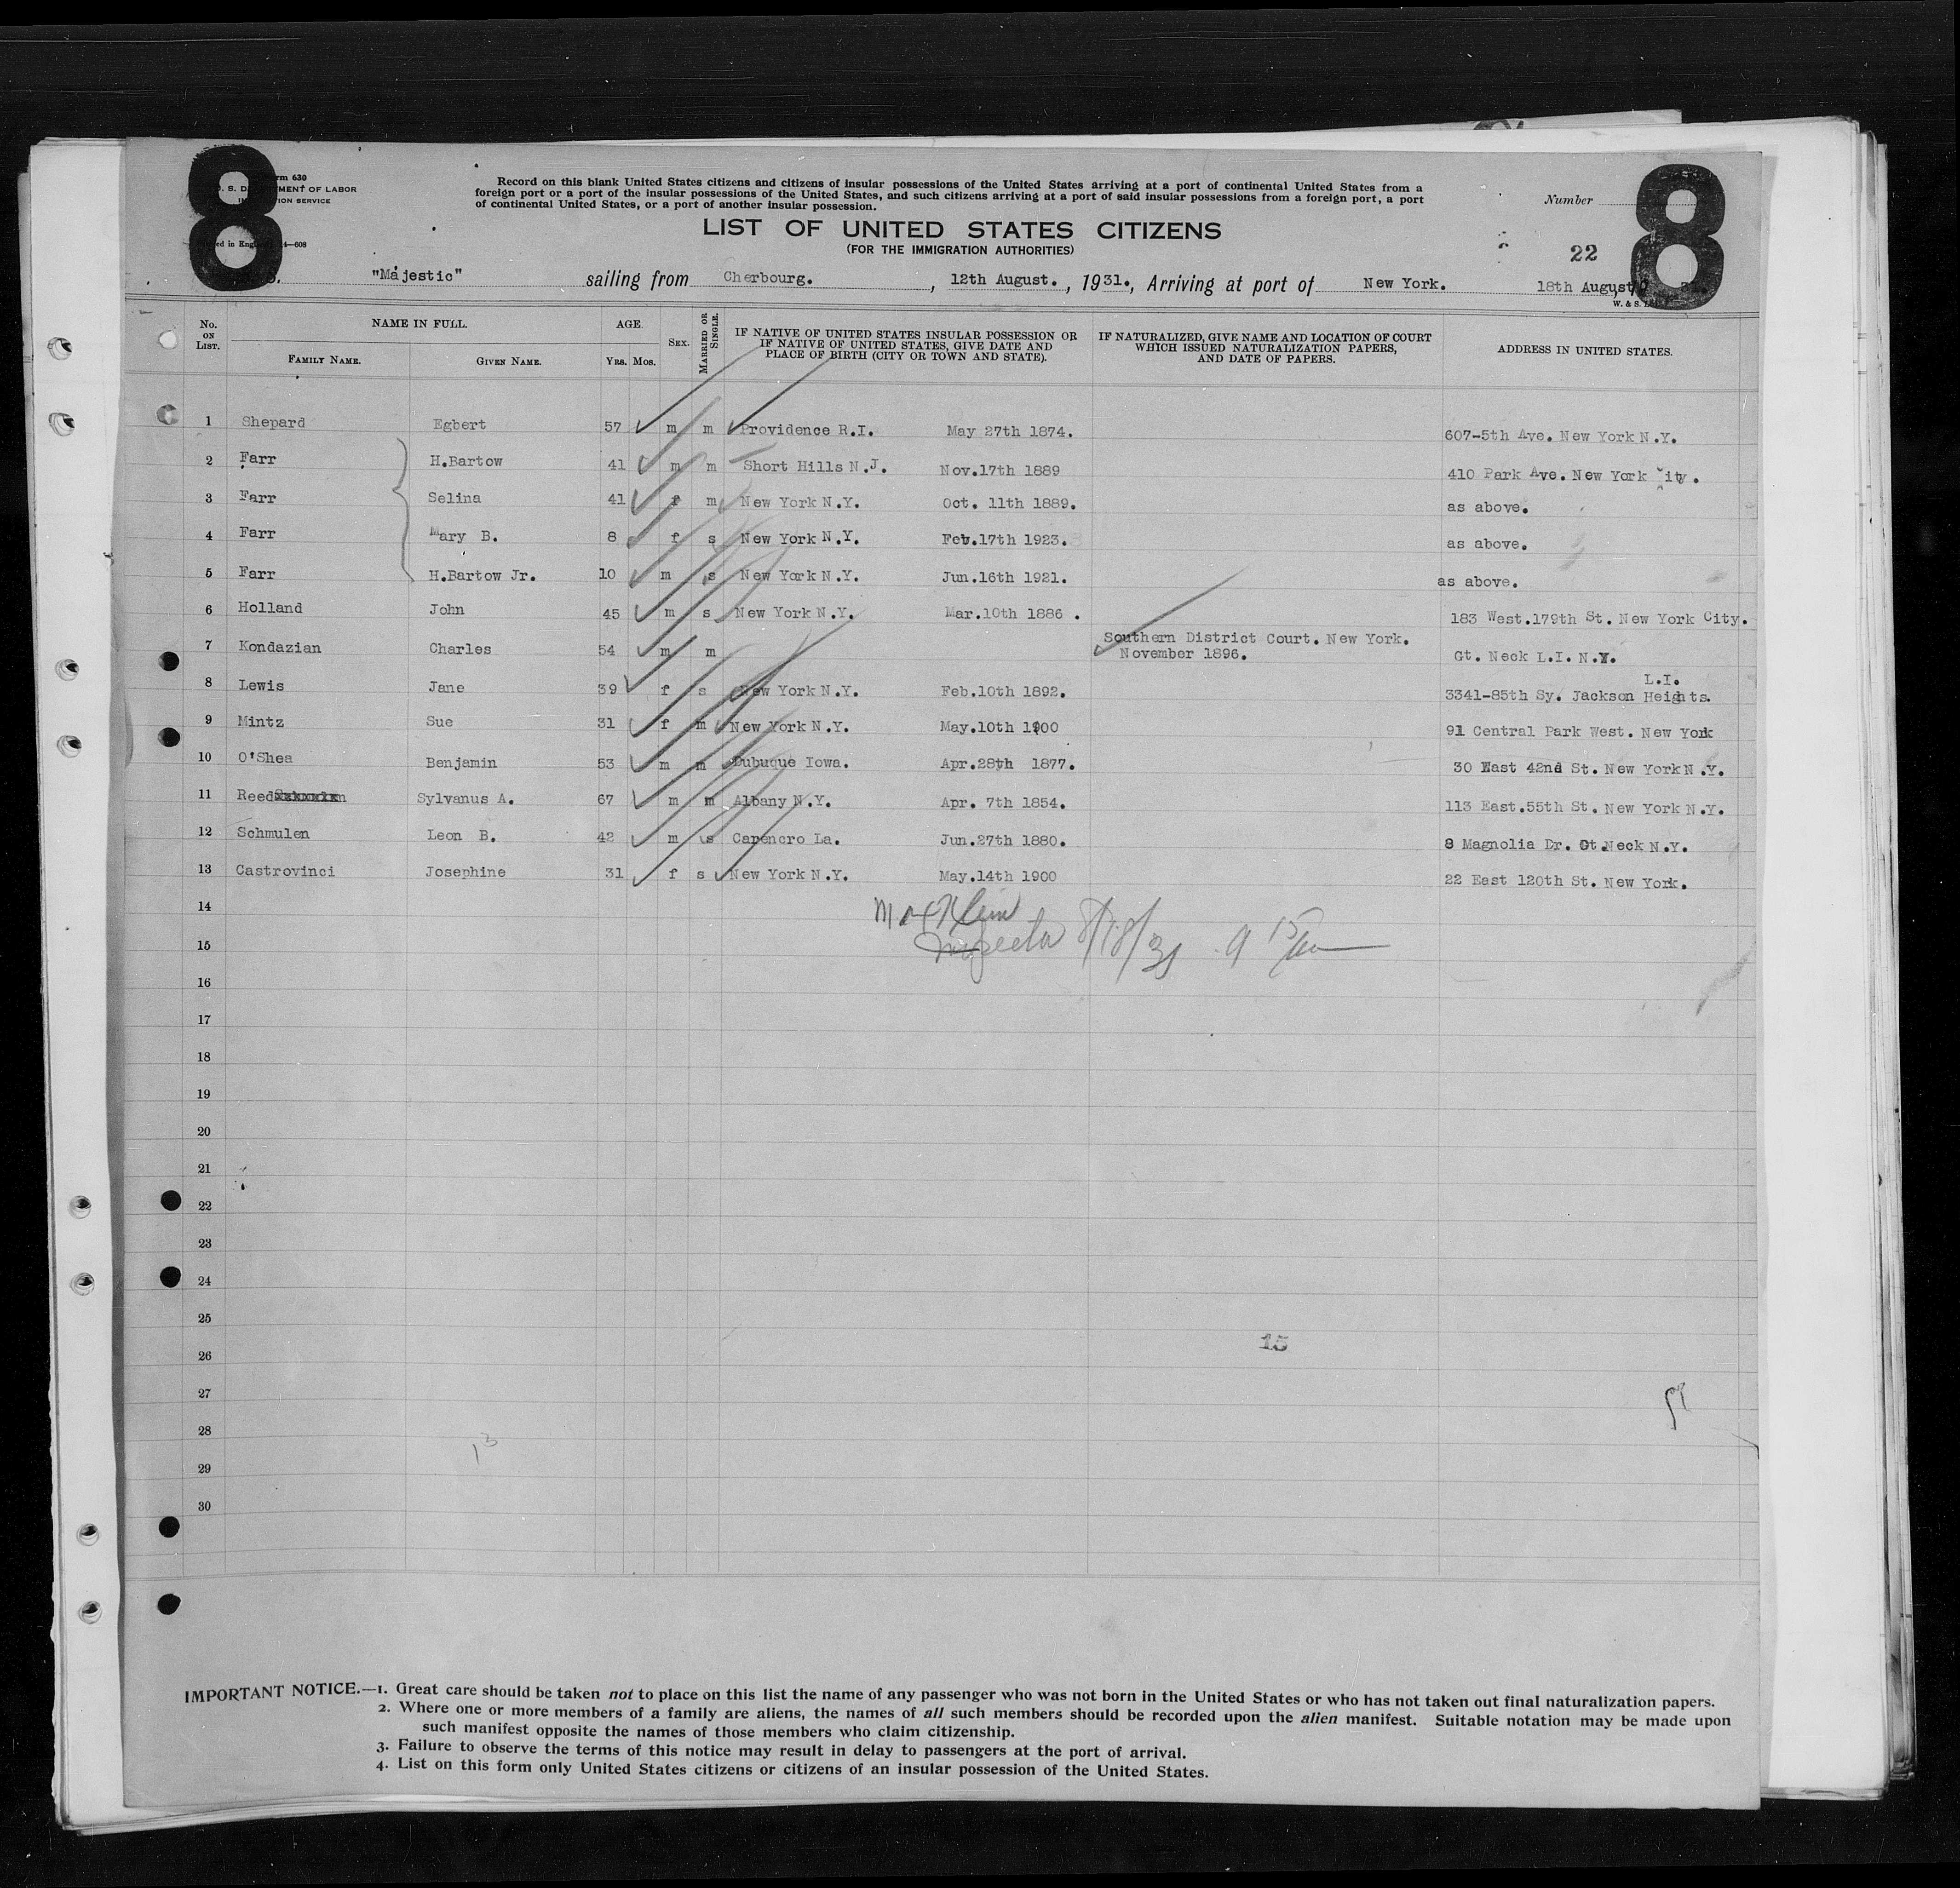 8
rm 630
U. S. D MENT OF LABOR
ION SERVICE
ed in Eng 14—608
Record on this blank United States citizens and citizens of insular possessions of the United States arriving at a port of continental United States from a
foreign port or a port of the insular possessions of the United States, and such citizens arriving at a port of said insular possessions from a foreign port, a port
of continental United States, or a port of another insular possession.
Number
8
LIST OF UNITED STATES CITIZENS
(FOR THE IMMIGRATION AUTHORITIES)
22
S. "Majestic" sailing from Cherbourg. , 12th August. , 1931., Arriving at port of New York. 18th August, 31.
W. & S. L
No. ON LIST. NAME IN FULL. AGE. SEX. MARRIED OR SINGLE. IF NATIVE OF UNITED STATES INSULAR POSSESSION OR IF NATIVE OF UNITED STATES, GIVE DATE AND PLACE OF BIRTH (CITY OR TOWN AND STATE). IF NATURALIZED, GIVE NAME AND LOCATION OF COURT WHICH ISSUED NATURALIZATION PAPERS, AND DATE OF PAPERS. ADDRESS IN UNITED STATES.
FAMILY NAME. GIVEN NAME. YRS. MOS.
1 Shepard Egbert 57 m m Providence R.I. May 27th 1874. 607-5th Ave. New York N.Y.
2 Farr H.Bartow 41 m m Short Hills N.J. Nov.17th 1889 410 Park Ave. New York City.
3 Farr Selina 41 f m New York N.Y. Oct. 11th 1889. as above.
4 Farr Mary B. 8 f s New York N.Y. Feb.17th 1923. as above.
5 Farr H.Bartow Jr. 10 m s New York N.Y. Jun.16th 1921. as above.
6 Holland John 45 m s New York N.Y. Mar.10th 1886 . 183 West.179th St. New York City.
7 Kondazian Charles 54 m m Southern District Court. New York.
November 1896. Gt. Neck L.I. N.Y.
8 Lewis Jane 39 f s New York N.Y. Feb.10th 1892. 3341-85th Sy. Jackson Heights. L.I.
9 Mintz Sue 31 f m New York N.Y. May.10th 1900 91 Central Park West. New York
10 O'Shea Benjamin 53 m m Dubuque Iowa. Apr.28th 1877. 30 East 42nd St. New York N.Y.
11 Reed Sylvanus A. 67 m m Albany N.Y. Apr. 7th 1854. 113 East.55th St. New York N.Y.
12 Schmulen Leon B. 42 m s Carencro La. Jun.27th 1880. 8 Magnolia Dr. Gt.Neck N.Y.
13 Castrovinci Josephine 31 f s New York N.Y. May.14th 1900 22 East 120th St. New York.
14
15 Inspector 8/18/31
16
17
18
19
20
21
22
23
24
25
15
26
27
28
13
29
30
IMPORTANT NOTICE.—1. Great care should be taken not to place on this list the name of any passenger who was not born in the United States or who has not taken out final naturalization papers.
2. Where one or more members of a family are aliens, the names of all such members should be recorded upon the alien manifest. Suitable notation may be made upon
such manifest opposite the names of those members who claim citizenship.
3. Failure to observe the terms of this notice may result in delay to passengers at the port of arrival.
4. List on this form only United States citizens or citizens of an insular possession of the United States.